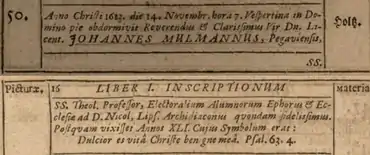 50.
Anno Christi 1613. die 14. Novembr. hora 7. Vespertina in Do-
mino pie obdormivit Reverendus & Clarissimus Vir Dn. Li-
cent. JOHANNES MULMANNUS, Pegaviensis,
Holtz.
SS.
Picturæ. 16 LIBER I. INSCRIPTIONUM materia
SS. Theol. Professor, Electoralium Alumnorum Ephorus & Ec-
clesiæ ad D. Nicol. Lips. Archidiaconus quondam fidelissimus.
Postquam vixisset Annos XLI. Cujus Symbolum erat:
Dulcior es vitâ Christe benigne meâ. Psal. 63. 4.